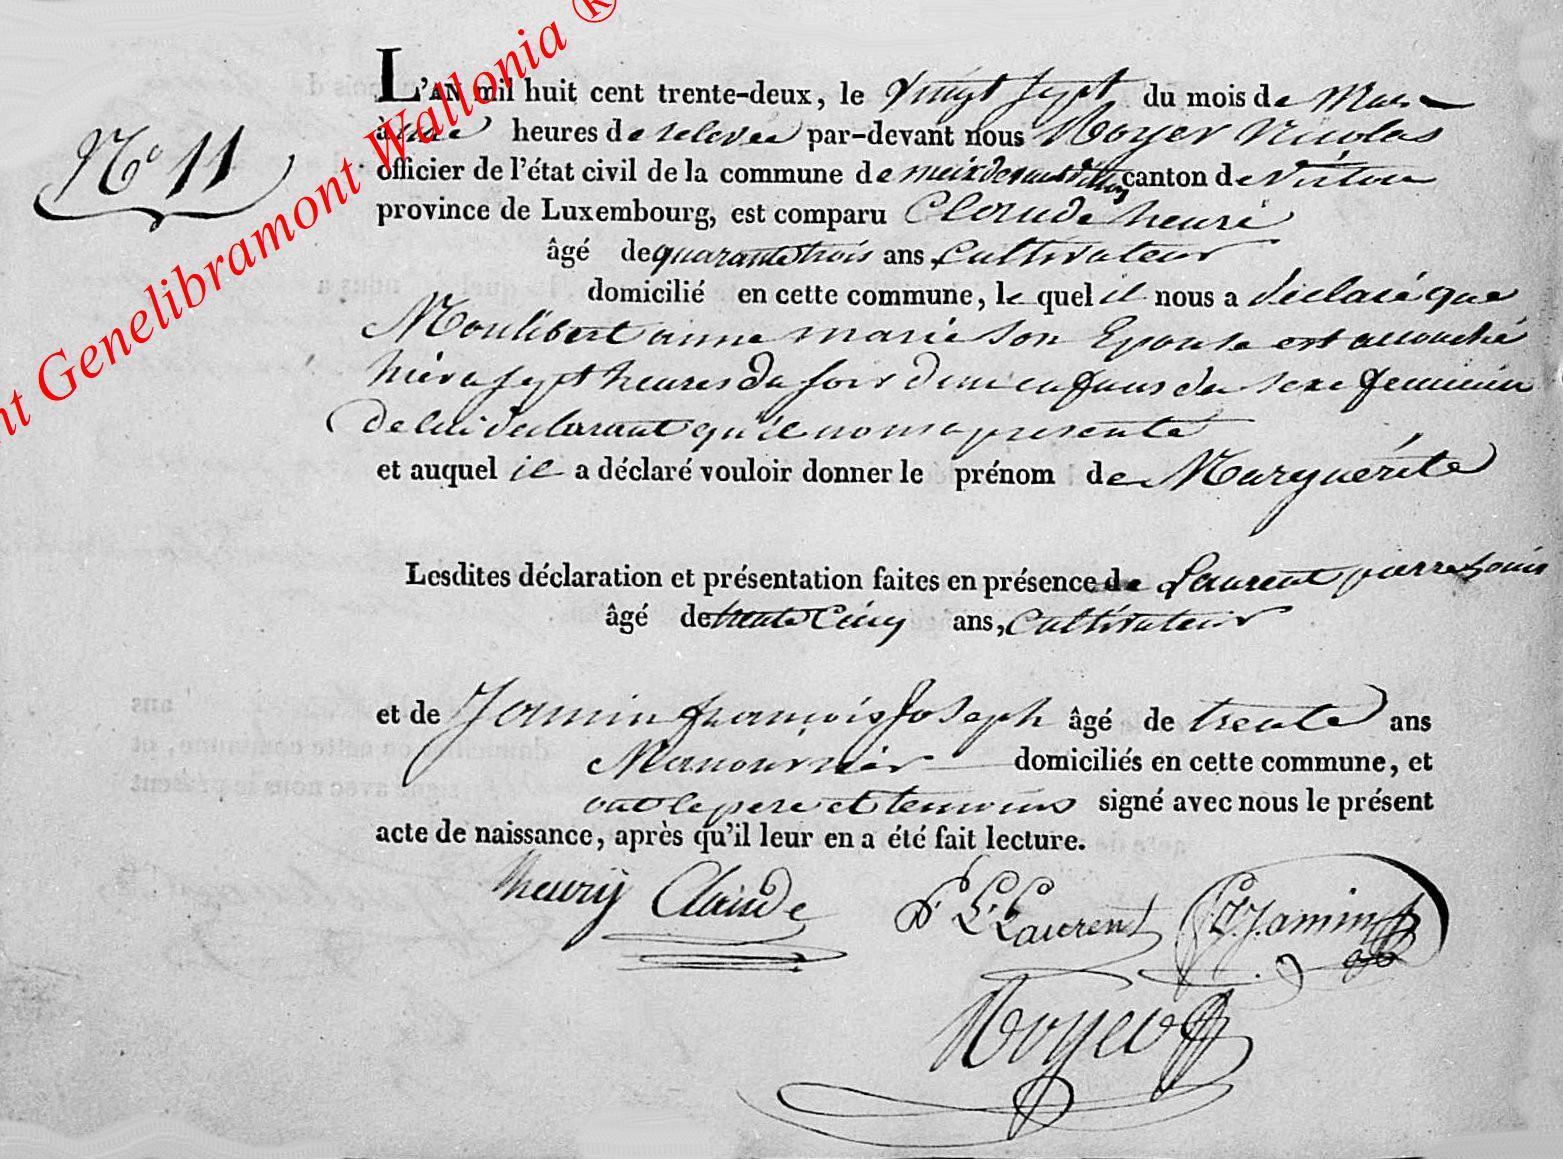 nt Genelibramont Wallonia ®
L'AN mil huit cent trente-deux, le vingt sept du mois de Mars
N° 11
à une heures de relevée par-devant nous Noyer Nicolas
officier de l'état civil de la commune de meixdevantvirton canton de Virton
province de Luxembourg, est comparu Claude henri
âgé de quarante trois ans Cultivateur
domicilié en cette commune, le quel il nous a déclaré que
Moulibert anne marie son Epouse est accouché
hier a sept heures du soir d'un enfans du sexe feminin
de lui declarant qu'il nous a presenté
et auquel il a déclaré vouloir donner le prénom de Marguérite
Lesdites déclaration et présentation faites en présence de Laurent pierre Louis
âgé de trente Cinq ans, Cultivateur
et de Jamin françois Joseph âgé de trente ans
Manouvrier domiciliés en cette commune, et
ont le pere et temoins signé avec nous le présent
acte de naissance, après qu'il leur en a été fait lecture.
henry Claude P. L. Laurent FJJamin
Noyer